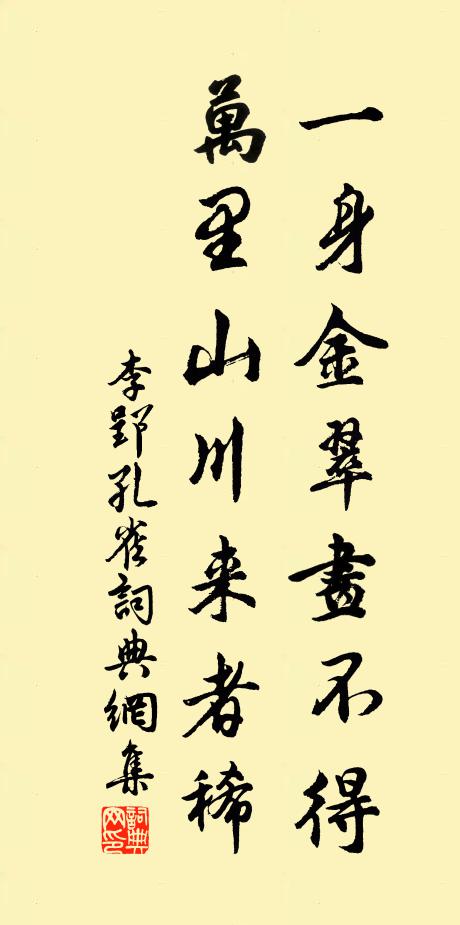 一身金翠畫不得
萬里山川来者稀
李郢孔雀詞典網集
詞典
网印